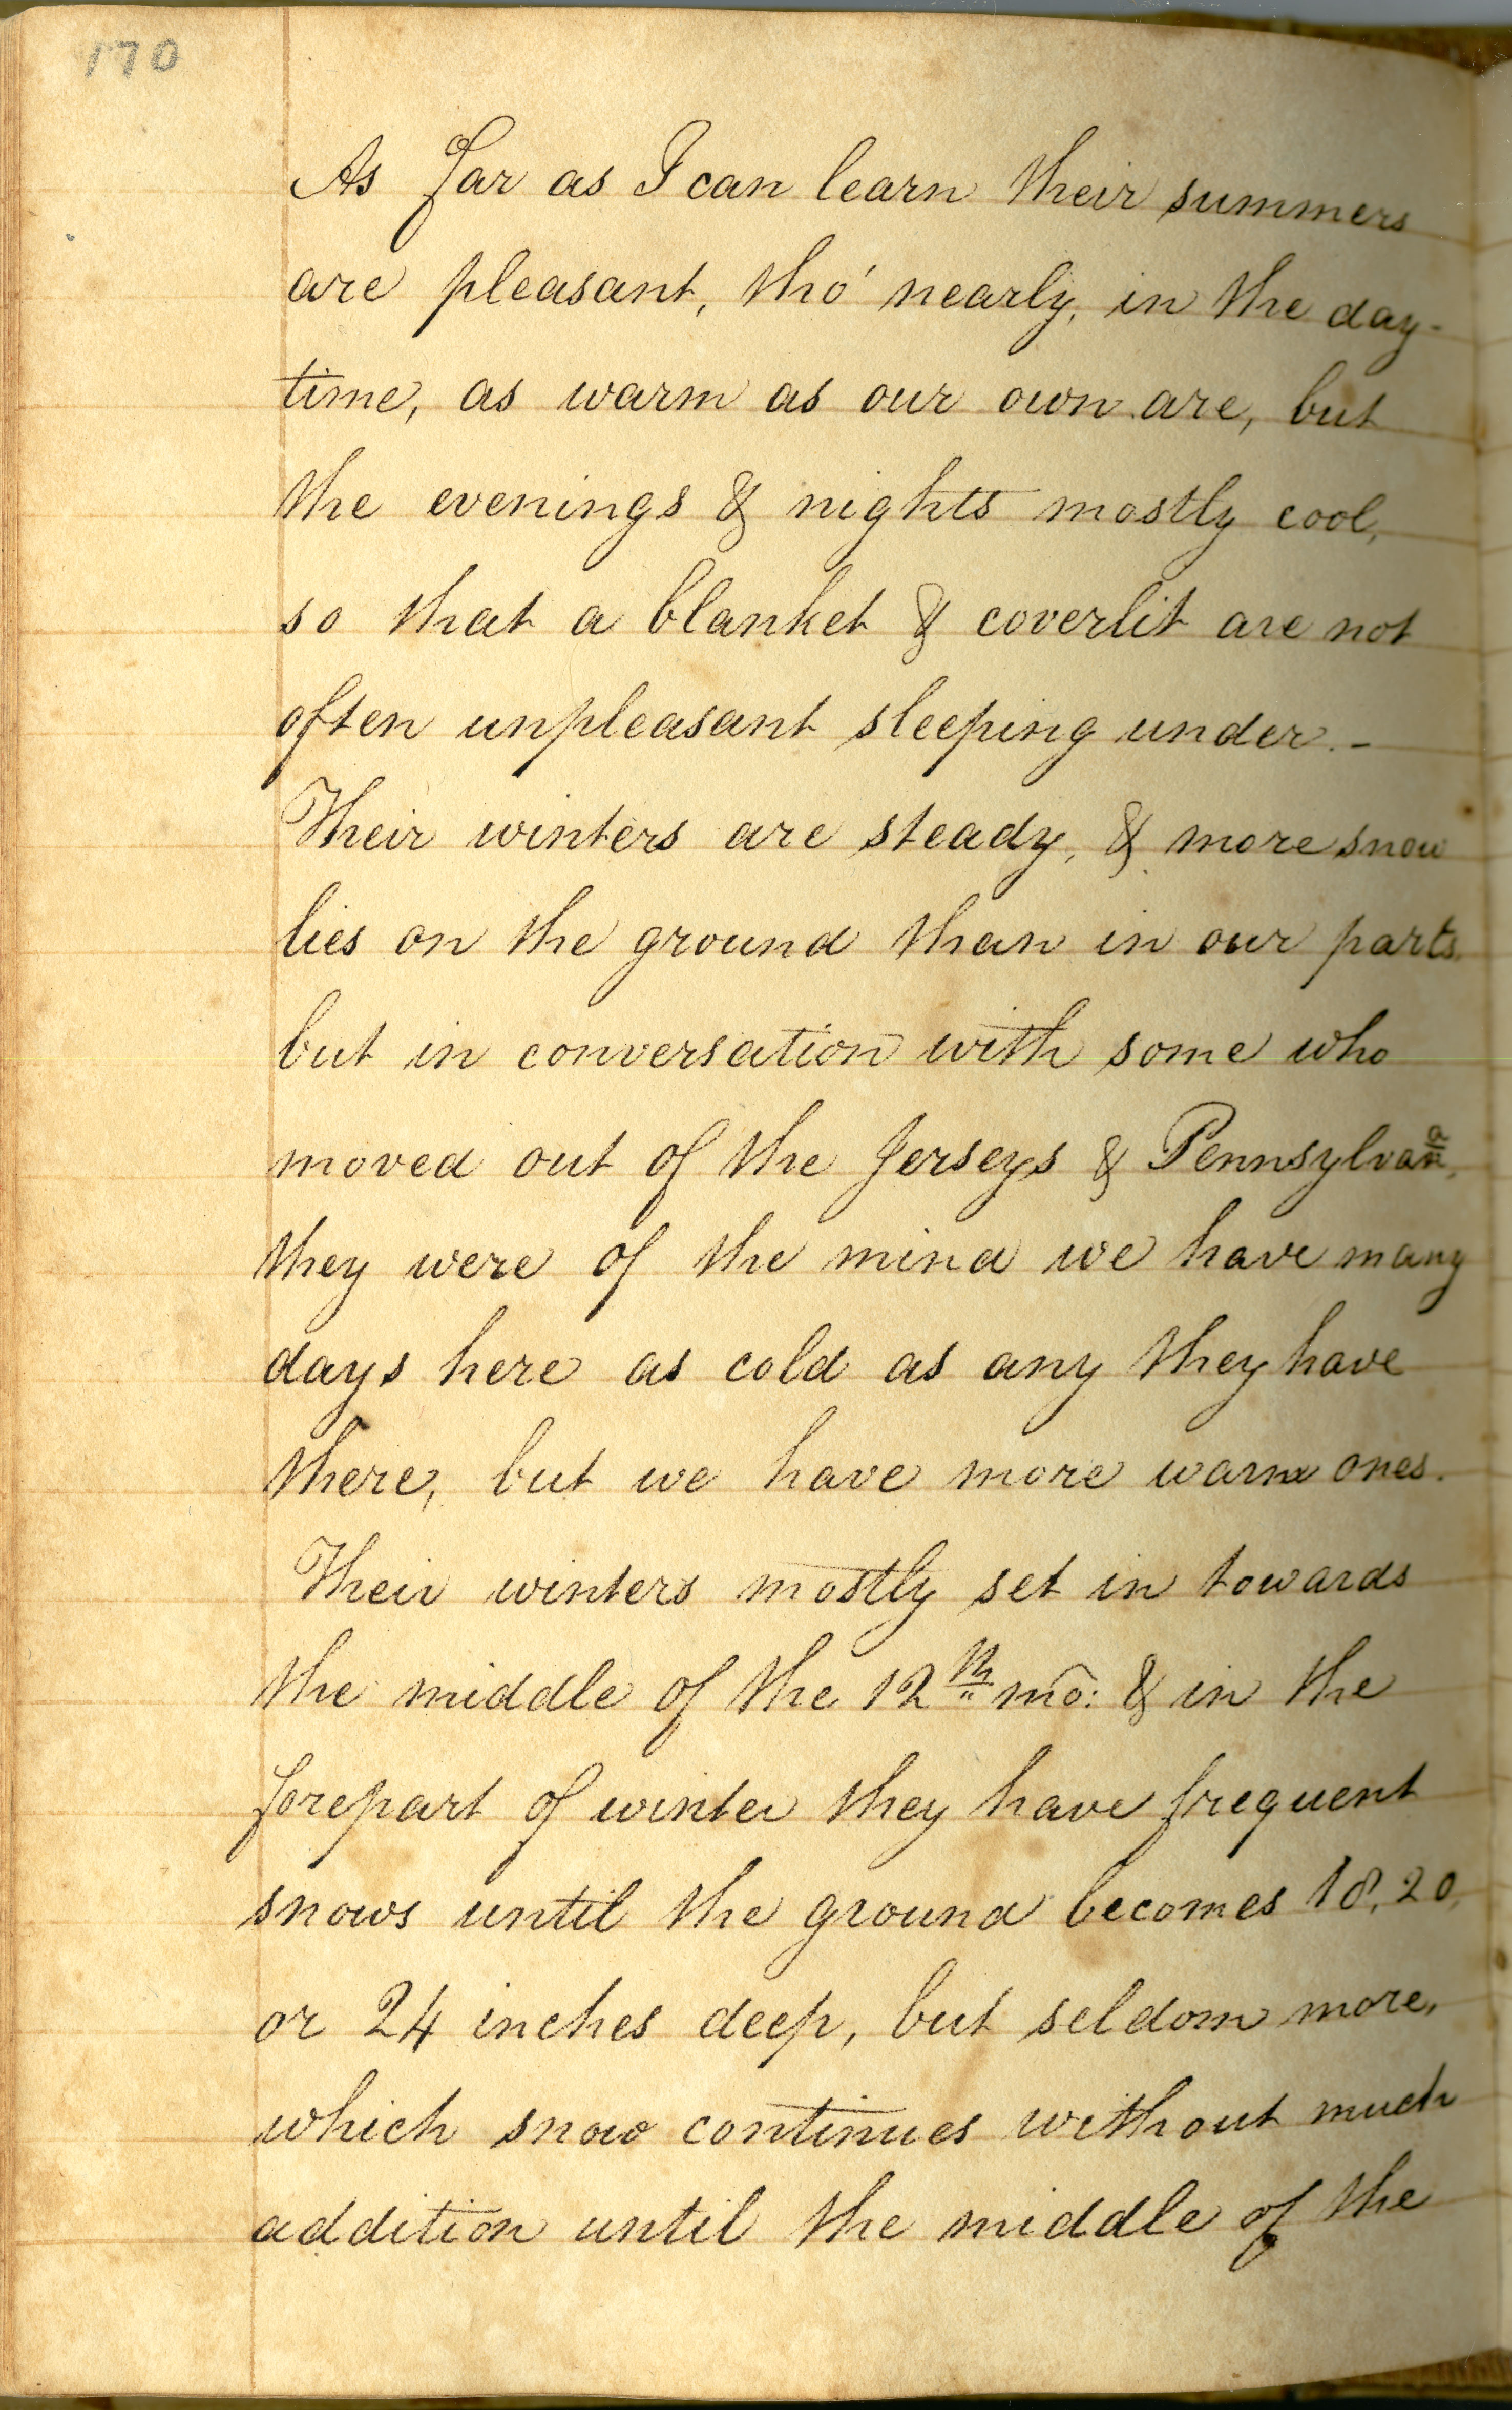 170
As far as I can learn their summers
are pleasant, tho' nearly, in the day-
time, as warm as our own are, but
the evenings & nights mostly cool,
so that a blanket & coverlit are not
often unpleasant sleeping under. -
Their winters are steady, & more snow
lies on the ground than in our parts.
but in conversation with some who
moved out of the Jerseys & Pennsylvanª,
they were of the mind we have many
days here as cold as any they have
there, but we have more warm ones.
Their winters mostly set in towards
the middle of the 12th mo: & in the
forepart of winter they have frequent
snows until the ground becomes 18, 20,
or 24 inches deep, but seldom more,
which snow continues without much
addition until the middle of the